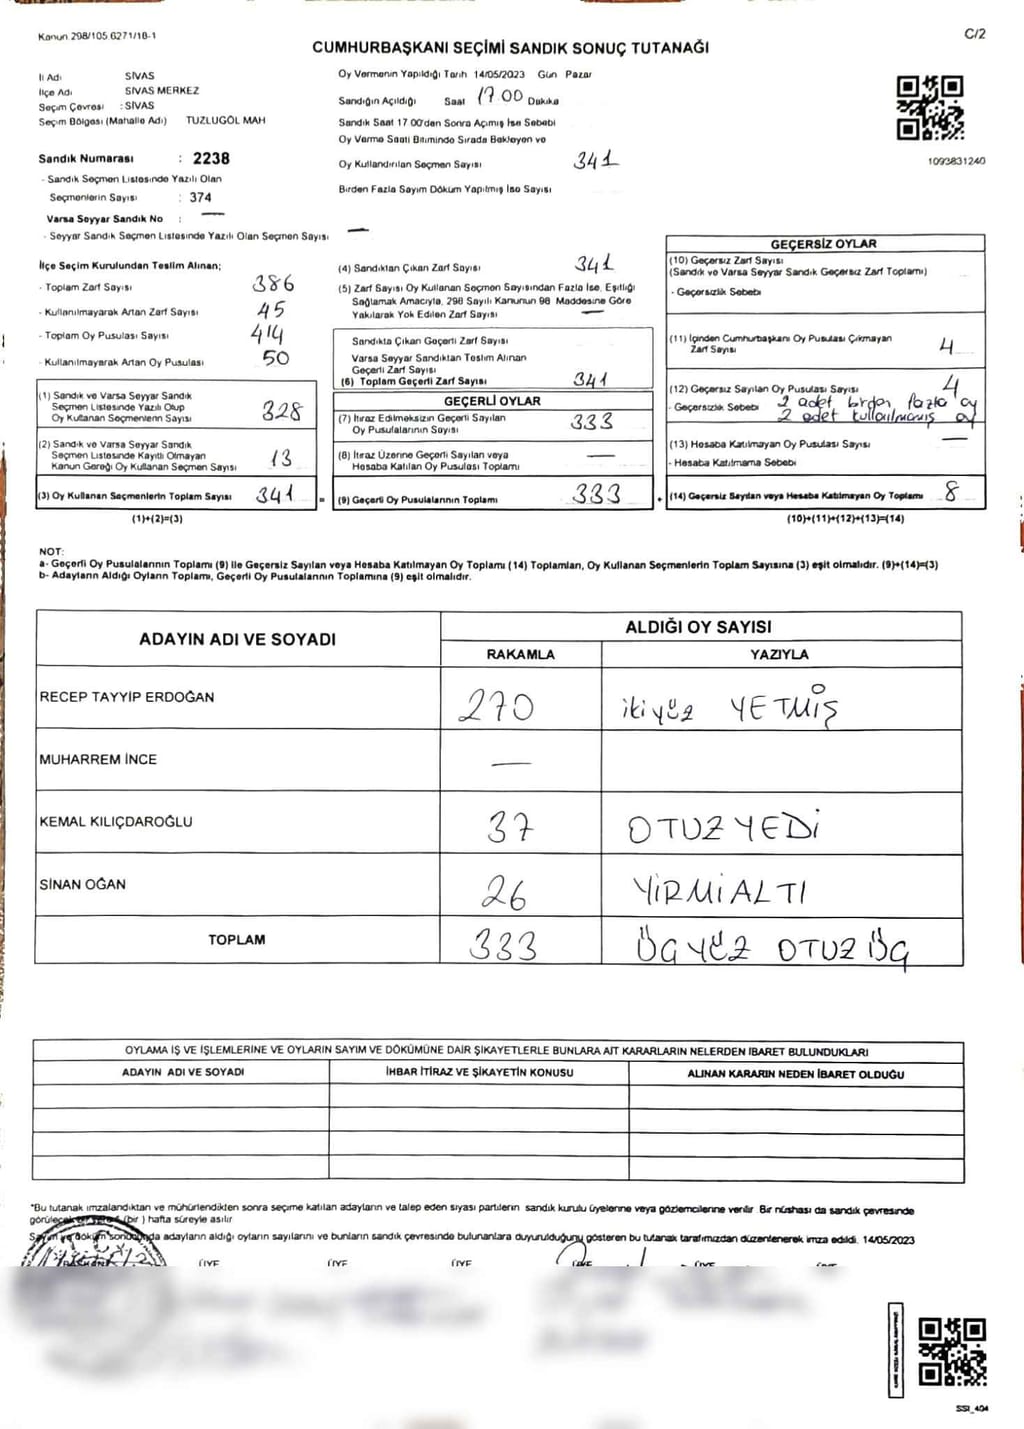 Kanun 298/105 6271/18-1
C/2
CUMHURBAŞKANI SEÇİMİ SANDIK SONUÇ TUTANAĞI
İl Adı SİVAS
İlçe Adı SİVAS MERKEZ
Seçim Çevresi : SİVAS
Seçim Bölgesi (Mahalle Adı) TUZLUGÖL MAH
Sandık Numarası : 2238
- Sandık Seçmen Listesinde Yazılı Olan
Seçmenlerin Sayısı : 374
Varsa Seyyar Sandık No : —
- Seyyar Sandık Seçmen Listesinde Yazılı Olan Seçmen Sayısı —
Oy Vermenin Yapıldığı Tarih 14/05/2023 Gün Pazar
Sandığın Açıldığı Saat 17.00 Dakika
Sandık Saat 17 00'den Sonra Açımış İse Sebebi
Oy Verme Saati Bitiminde Sırada Bekleyen ve
Oy Kullandırılan Seçmen Sayısı 341
Birden Fazla Sayım Döküm Yapılmış İse Sayısı
1093831240
İlçe Seçim Kurulundan Teslim Alınan;
- Toplam Zarf Sayısı 386
- Kullanılmayarak Artan Zarf Sayısı 45
- Toplam Oy Pusulası Sayısı 414
- Kullanılmayarak Artan Oy Pusulası 50
(1) Sandık ve Varsa Seyyar Sandık
Seçmen Listesinde Yazılı Olup
Oy Kullanan Seçmenlerin Sayısı 328
(2) Sandık ve Varsa Seyyar Sandık
Seçmen Listesinde Kayıtlı Olmayan
Kanun Gereği Oy Kullanan Seçmen Sayısı 13
(3) Oy Kullanan Seçmenlerin Toplam Sayısı 341 =
(1)+(2)=(3)
(4) Sandıktan Çıkan Zarf Sayısı 341
(5) Zarf Sayısı Oy Kullanan Seçmen Sayısından Fazla İse, Eşitliği
Sağlamak Amacıyla, 298 Sayılı Kanunun 98 Maddesine Göre
Yakılarak Yok Edilen Zarf Sayısı —
Sandıkta Çıkan Geçerli Zarf Sayısı
Varsa Seyyar Sandıktan Teslim Alınan
Geçerli Zarf Sayısı
(6) Toplam Geçerli Zarf Sayısı 341
GEÇERLİ OYLAR
(7) İtiraz Edilmeksizin Geçerli Sayılan
Oy Pusulalarının Sayısı 333
(8) İtiraz Üzerine Geçerli Sayılan veya
Hesaba Katılan Oy Pusulası Toplamı —
(9) Geçerli Oy Pusulalarının Toplamı 333 +
GEÇERSİZ OYLAR
(10) Geçersiz Zarf Sayısı
(Sandık ve Varsa Seyyar Sandık Geçersiz Zarf Toplamı)
- Geçersizlik Sebebi
(11) İçinden Cumhurbaşkanı Oy Pusulası Çıkmayan
Zarf Sayısı 4
(12) Geçersiz Sayılan Oy Pusulası Sayısı 4
- Geçersizlik Sebebi 2 adet birden fazla oy
2 adet kullanılmamış oy
(13) Hesaba Katılmayan Oy Pusulası Sayısı —
- Hesaba Katılmama Sebebi
(14) Geçersiz Sayılan veya Hesaba Katılmayan Oy Toplamı 8
(10)+(11)+(12)+(13)=(14)
NOT:
a- Geçerli Oy Pusulalarının Toplamı (9) ile Geçersiz Sayılan veya Hesaba Katılmayan Oy Toplamı (14) Toplamları, Oy Kullanan Seçmenlerin Toplam Sayısına (3) eşit olmalıdır. (9)+(14)=(3)
b- Adayların Aldığı Oyların Toplamı, Geçerli Oy Pusulalarının Toplamına (9) eşit olmalıdır.
ADAYIN ADI VE SOYADI
ALDIĞI OY SAYISI
RAKAMLA YAZIYLA
RECEP TAYYİP ERDOĞAN 270 ikiyüz YETMİŞ
MUHARREM İNCE —
KEMAL KILIÇDAROĞLU 37 OTUZYEDİ
SİNAN OĞAN 26 YİRMİALTI
TOPLAM 333 ÜÇYÜZ OTUZÜÇ
OYLAMA İŞ VE İŞLEMLERİNE VE OYLARIN SAYIM VE DÖKÜMÜNE DAİR ŞİKAYETLERLE BUNLARA AİT KARARLARIN NELERDEN İBARET BULUNDUKLARI
ADAYIN ADI VE SOYADI İHBAR İTİRAZ VE ŞİKAYETİN KONUSU ALINAN KARARIN NEDEN İBARET OLDUĞU
*Bu tutanak imzalandıktan ve mühürlendikten sonra seçime katılan adayların ve talep eden siyasi partilerin sandık kurulu üyelerine veya gözlemcilerine verilir Bir nüshası da sandık çevresinde
görülecek bir yere (bir) hafta süreyle asılır
Sayım ve döküm sonucunda adayların aldığı oyların sayılarını ve bunların sandık çevresinde bulunanlara duyurulduğunu gösteren bu tutanak tarafımızdan düzenlenerek imza edildi. 14/05/2023
ÜYE ÜYE ÜYE ÜYE ÜYE
SSI_404